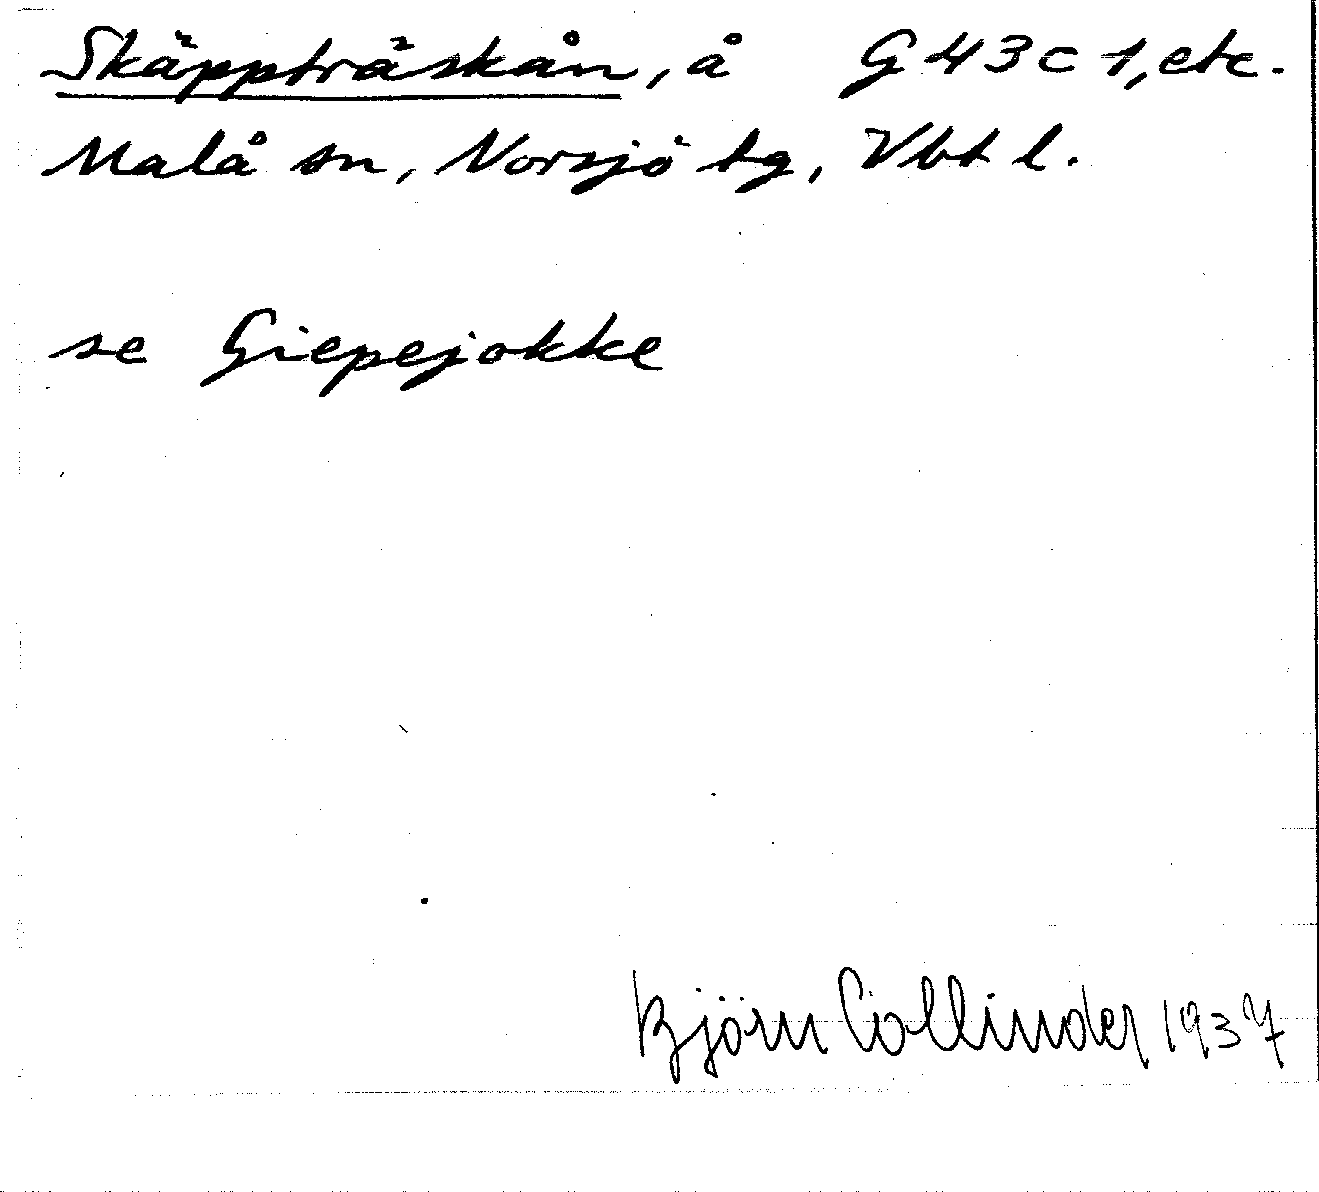 Skäppträskån, å G43c1, etc.
Malå sn, Norsjö tg, Vbt l.
se Giepejokke
Björn Collinder 1937